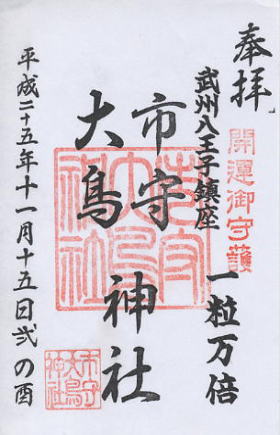 奉拝
開運御守護
武州八王子鎮座
一粒万倍
市守
大鳥
神社
平成二十五年十一月十五日弐の酉
市守
大鳥
神社
市守
大鳥
神社